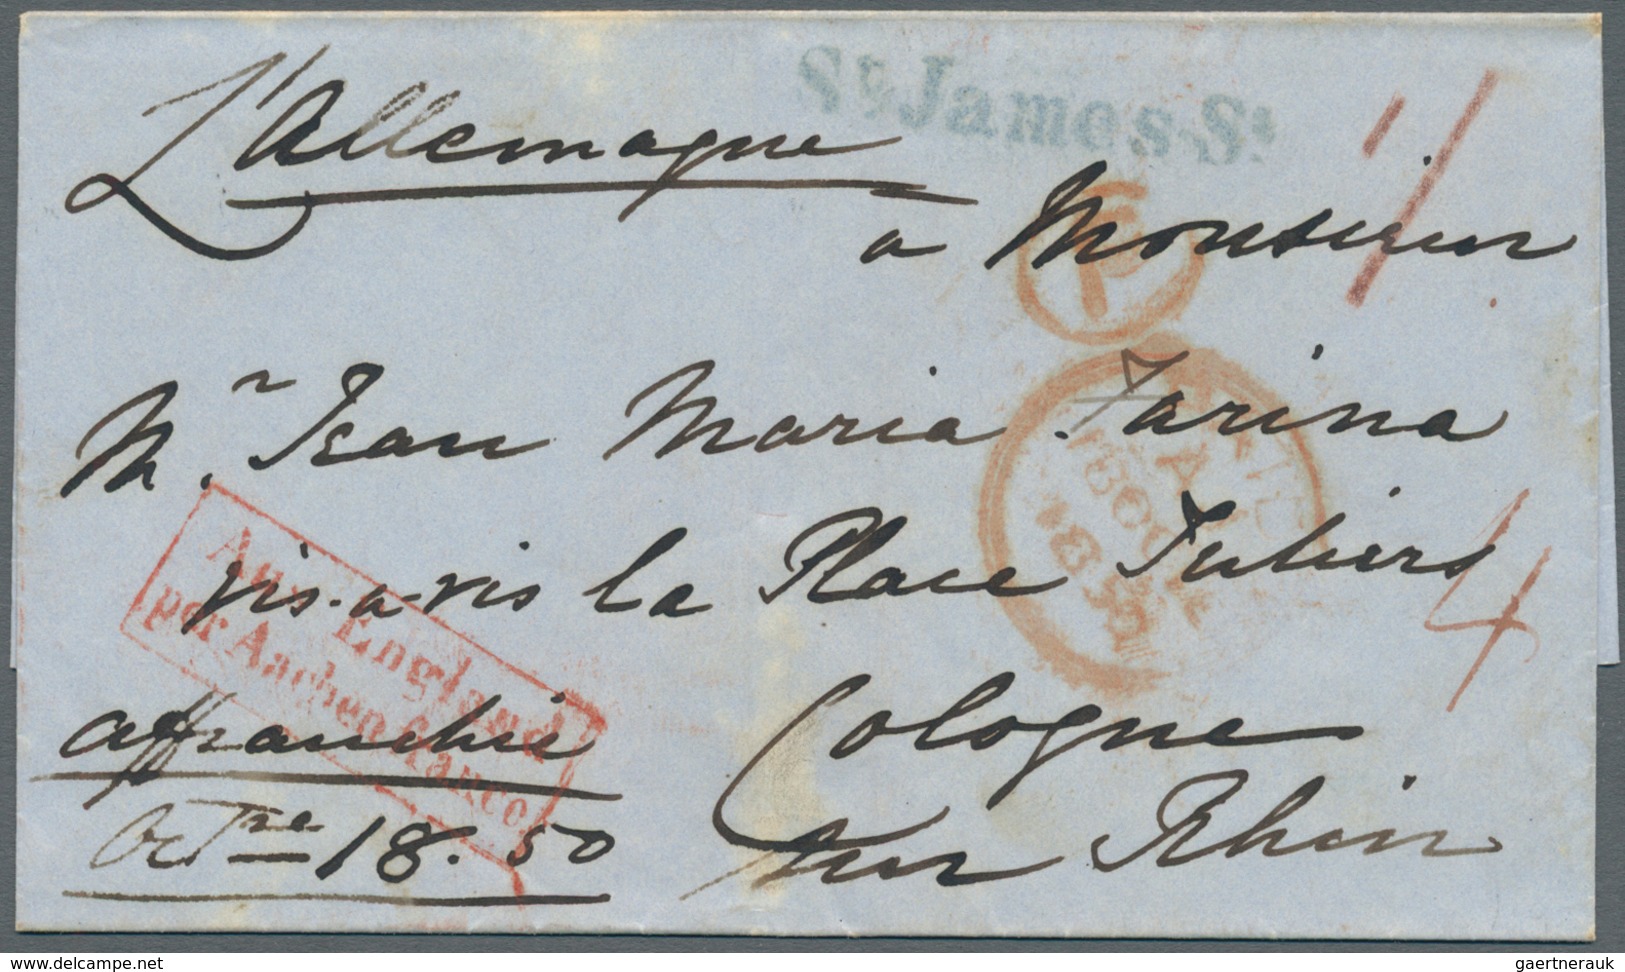 St James St
L'Allemagne
a Monsieur
P
1/
Mr. Jean Maria Farina
vis-a-vis la Place Juliers
4
Cologne
sur Rhin
affranchie
Octre 18. 50
Aus England
per Aachen franco
18 OC
1850
www.delcampe.net
gaertnerauk